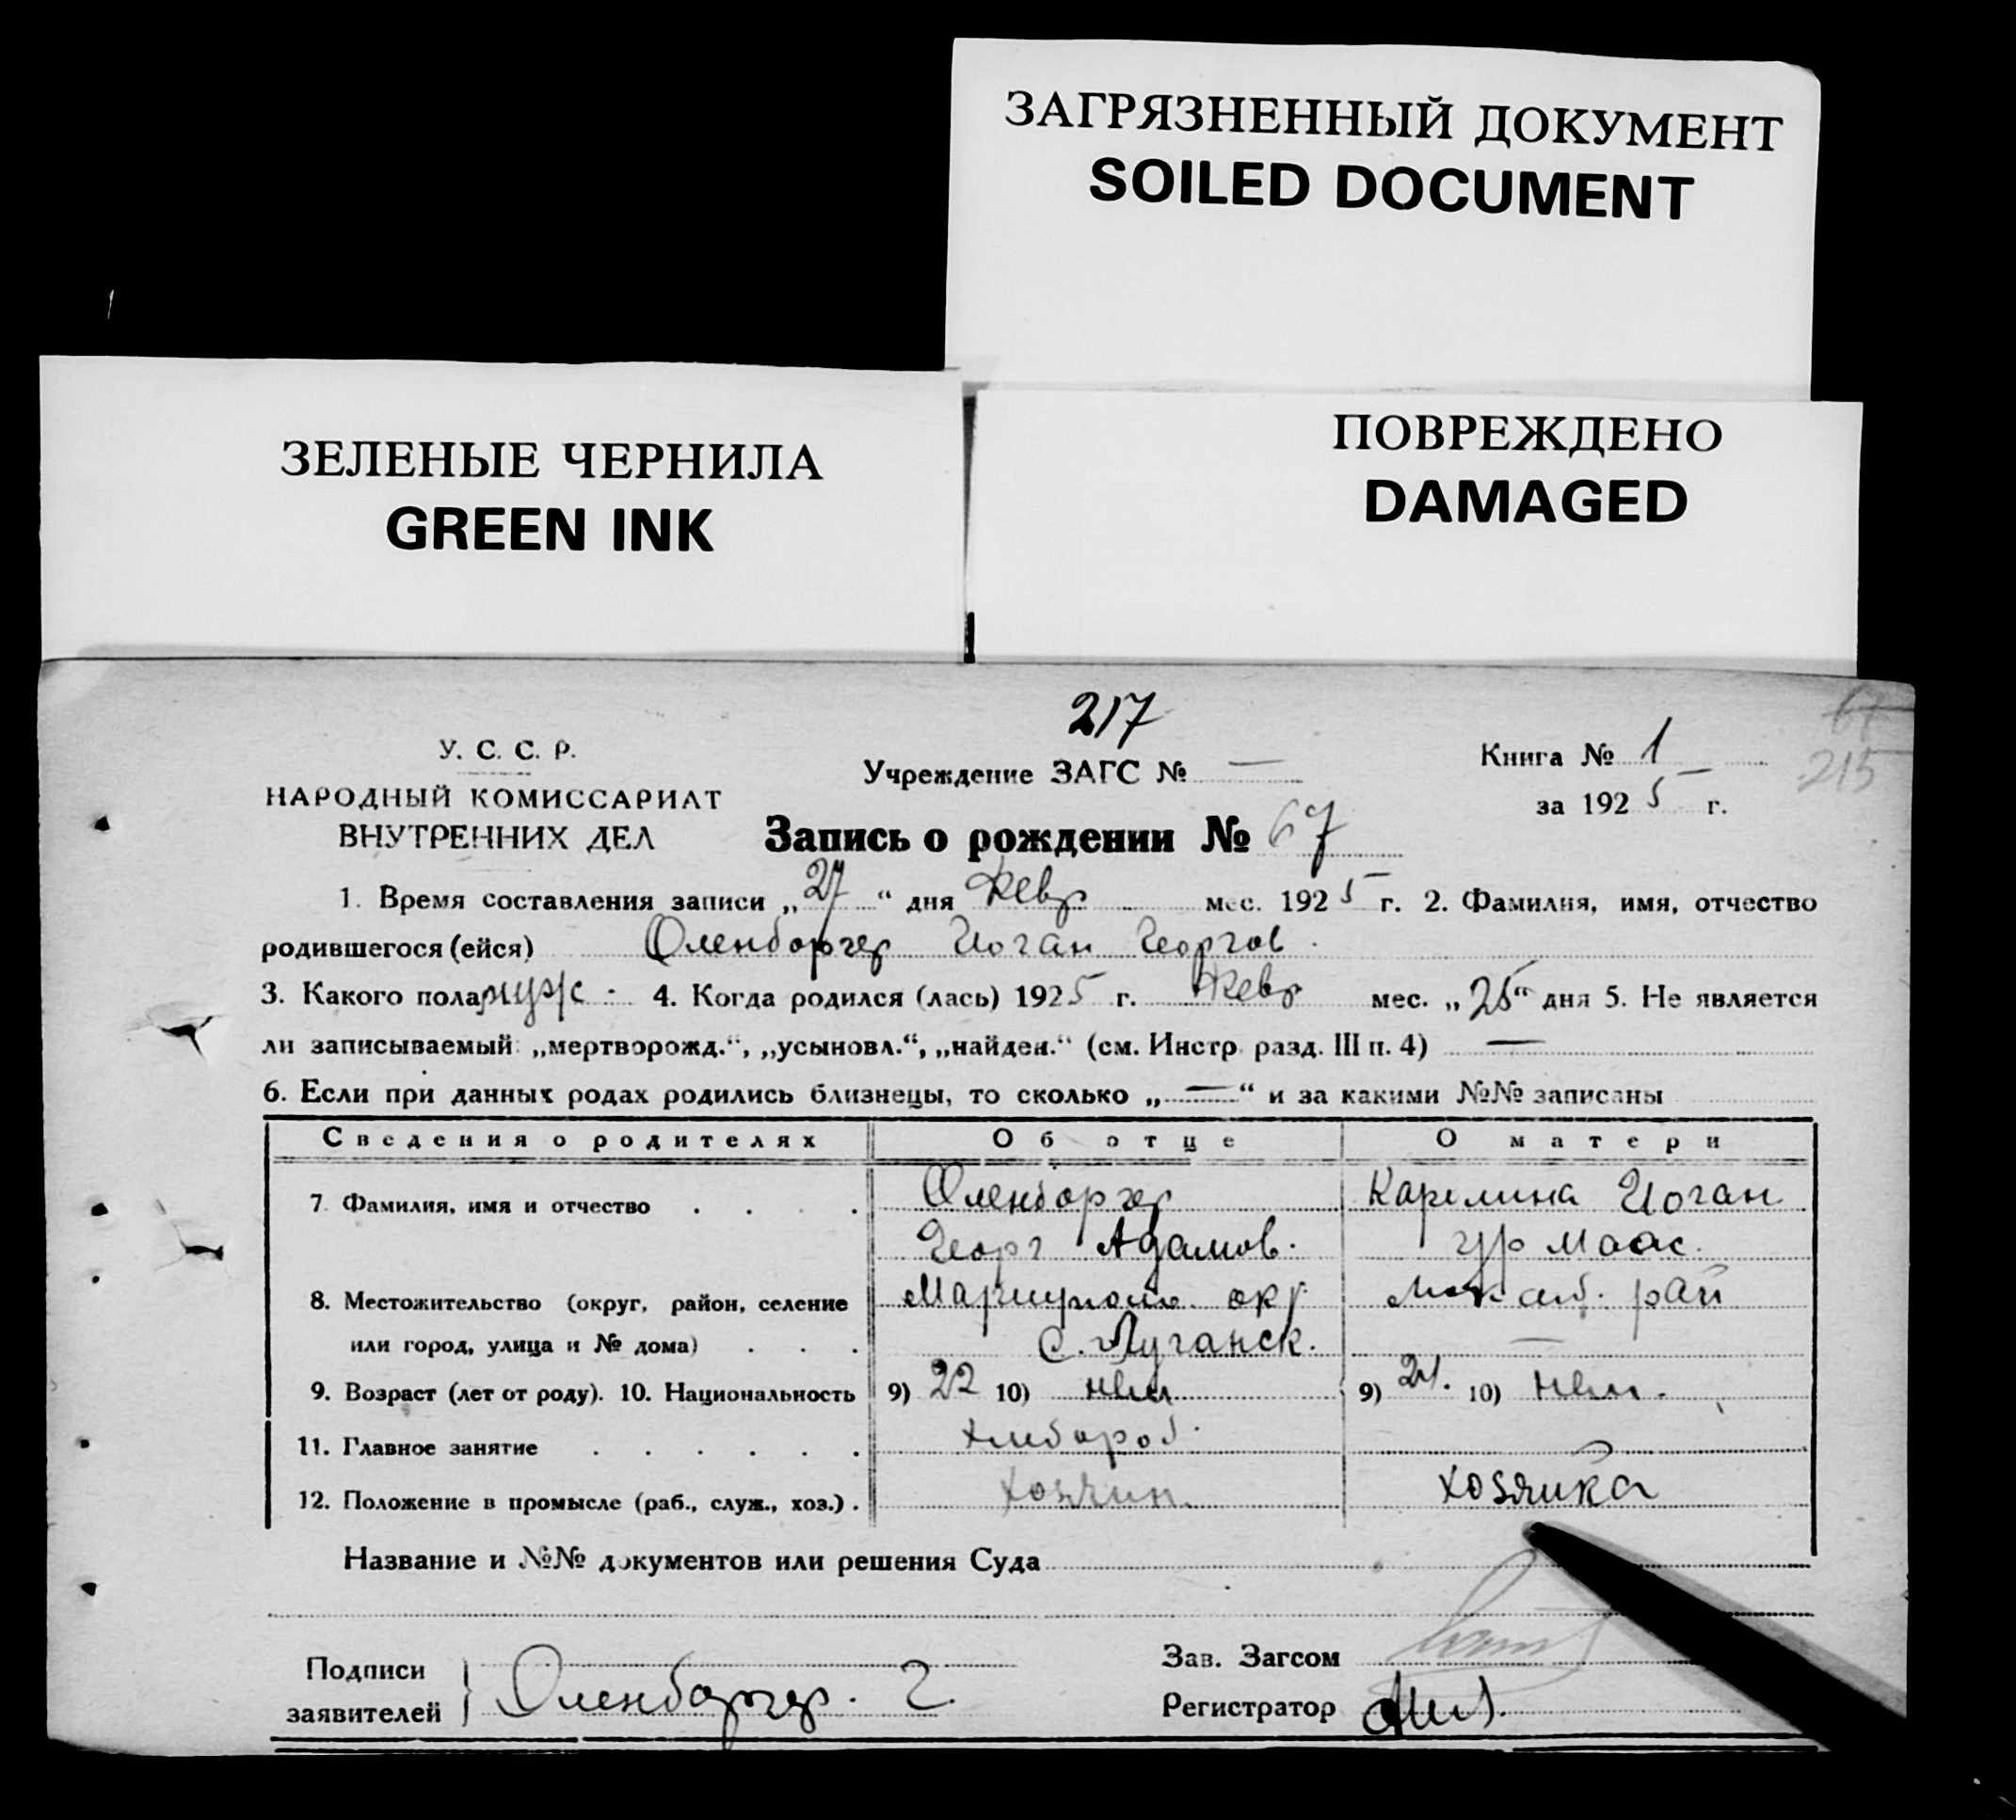 ЗАГРЯЗНЕННЫЙ ДОКУМЕНТ
SOILED DOCUMENT
ЗЕЛЕНЫЕ ЧЕРНИЛА
GREEN INK
ПОВРЕЖДЕНО
DAMAGED
217
67
215
У. С. С. Р.
НАРОДНЫЙ КОМИССАРИАТ
ВНУТРЕННИХ ДЕЛ
Учреждение ЗАГС № —
Книга № 1
за 1925 г.
Запись о рождении № 67
1. Время составления записи „27“ дня Февр мес. 1925 г. 2. Фамилия, имя, отчество
родившегося (ейся) Оленборгер Иоган Георгов.
3. Какого пола муж. 4. Когда родился (лась) 1925 г. Февр мес. „25“ дня 5. Не является
ли записываемый: „мертворожд.“, „усыновл.“, „найден.“ (см. Инстр. разд. III п. 4) —
6. Если при данных родах родились близнецы, то сколько „—“ и за какими №№ записаны
Сведения о родителях Об отце О матери
7. Фамилия, имя и отчество . . . . Оленборгер Каролина Иоган
Георг Адамов. ур Маас.
8. Местожительство (округ, район, селение Мариупол. окр. рай
или город, улица и № дома) . . . С. Луганск. —
9. Возраст (лет от роду). 10. Национальность 9) 22 10) нем 9) 21. 10) нем.
11. Главное занятие . . . . . . хлебороб.
12. Положение в промысле (раб., служ., хоз.) . хозяин. хозяйка
Название и №№ документов или решения Суда
Подписи
заявителей } Оленборгер. Г.
Зав. Загсом
Регистратор